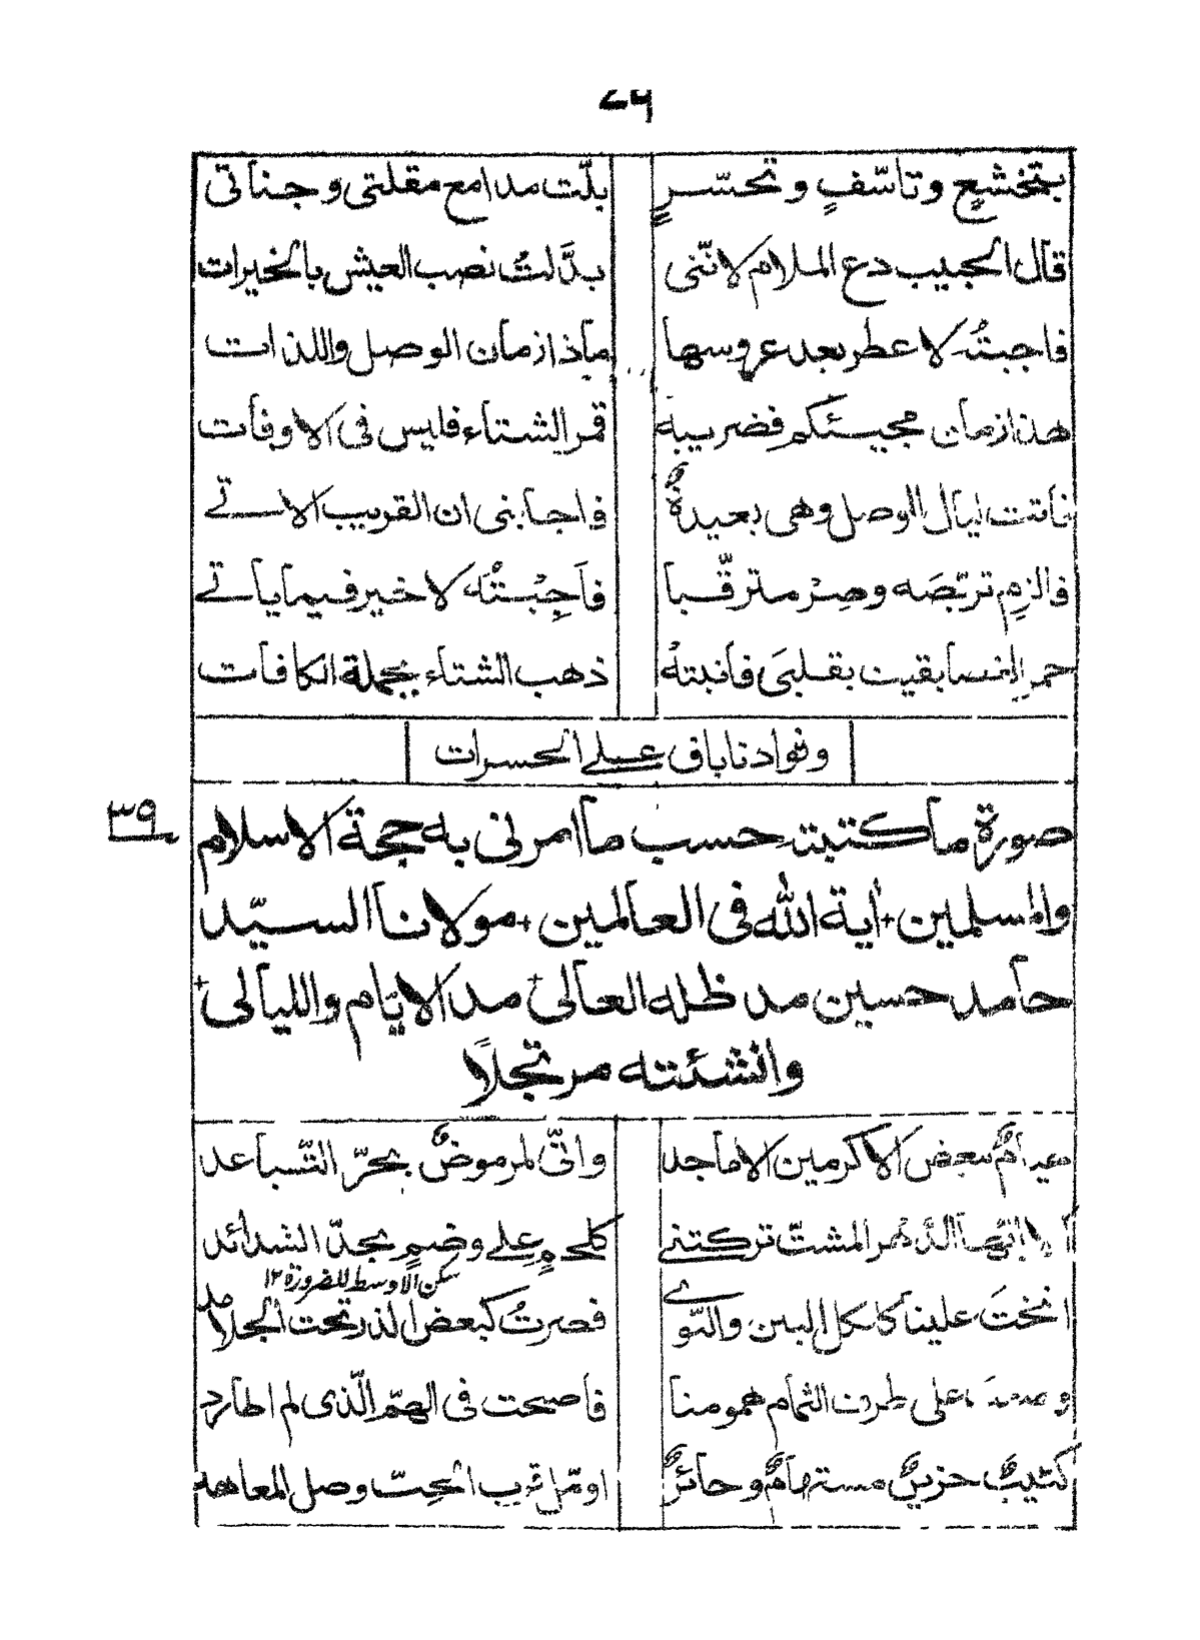 ٧٦
بتخشعٍ وتاسّفٍ وتحسّرٍ بلّت مدامع مقلتي وجناتي
قال الحبيب دع الملام لانّني بدّلتُ نصب العيش بالخيرات
فاجبتُه لا عطر بعد عروسها ماذا زمان الوصل واللذات
هذا زمان مجيئكم فضريبه قمر الشتاء فليس في الاوفات
فاتت ليال الوصل وهي بعيدةٌ فاجابني ان القريب الاتے
فالزم تربّصه وصِرْ مترقّبا فاَجِبْتُه لا خير فيما ياتے
بقيت بقلبي فانبتهُ ذهب الشتاء بجملة الكافات
وفوادنا باق علے الحسرات
٣٩
صورة ما كتبت حسب ما امرني به حجة الاسلام
والمسلمين + اية الله في العالمين + مولانا السيّد
حامد حسين مد ظله العالى + مد الايّام والليالى +
وانشئته مرتجلاً
بعض الاكرمين الاماجد وانّي لمرموضٌ بحرّ التّباعد
الدّهر المشتّ تركتنے كلحمٍ علے وضمٍ بحدّ الشدائد
سكن الاوسط للضرورة ١٢
انختَ علينا كلكل البين والنّوے فصرتُ كبعض الذر تحت الجلامد
على طرف الثمام همومنا فاصبحت في الهمّ الّذي لم اطارد
كئيبٌ حزينٌ مستهامٌ وحائرٌ اومّل قرب الحِبّ وصل المعاهد